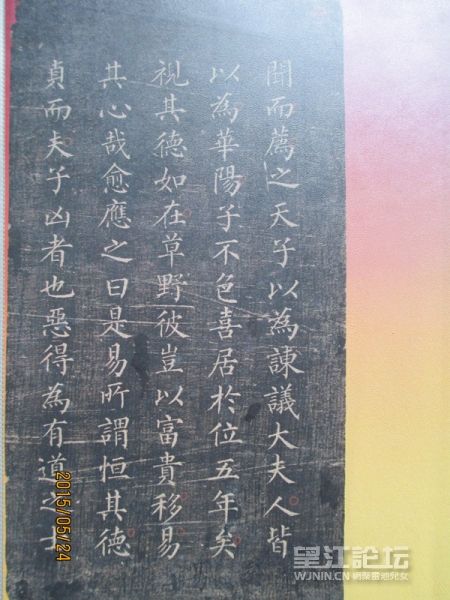 聞而薦之天子以為諫議大夫人皆
以為華陽子不色喜居於位五年矣
視其德如在草野彼豈以富貴移易
其心哉愈應之曰是易所謂恒其德
貞而夫子凶者也惡得為有道之士
2015/05/24
望江論坛
WJNIN.CN 網聚雷池兒女